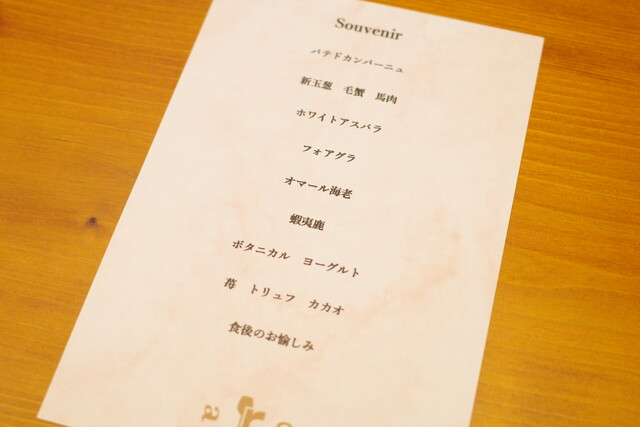 Souvenir
パテドカンパーニュ
新玉葱 毛蟹 馬肉
ホワイトアスパラ
フォアグラ
オマール海老
蝦夷鹿
ボタニカル ヨーグルト
苺 トリュフ カカオ
食後のお愉しみ